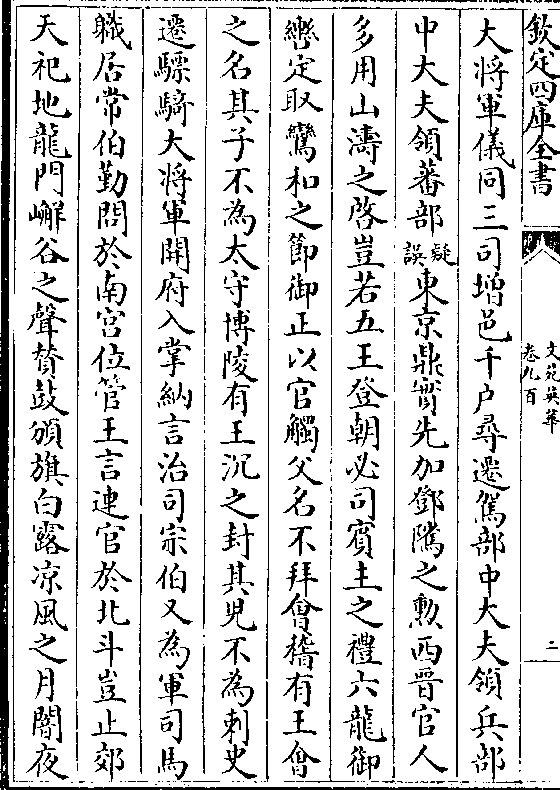 欽定四庫全書
文苑英華
卷九百
二
大將軍儀同三司增邑千户尋遷駕部中大夫領兵部
中大夫領蕃部疑誤東京鼎實先加鄧隲之勲西晉官人
多用山濤之啓豈若五王登朝必司賓主之禮六龍御
轡定取鸞和之節御正以官觸父名不拜會稽有王會
之名其子不為太守博陵有王沉之封其兒不為刺史
遷驃騎大將軍開府入掌納言治司宗伯又為軍司馬
職居常伯勤問於南宫位管王言連官於北斗豈止郊
天祀地龍門嶰谷之聲賛鼓頒旗白露凉風之月闇夜